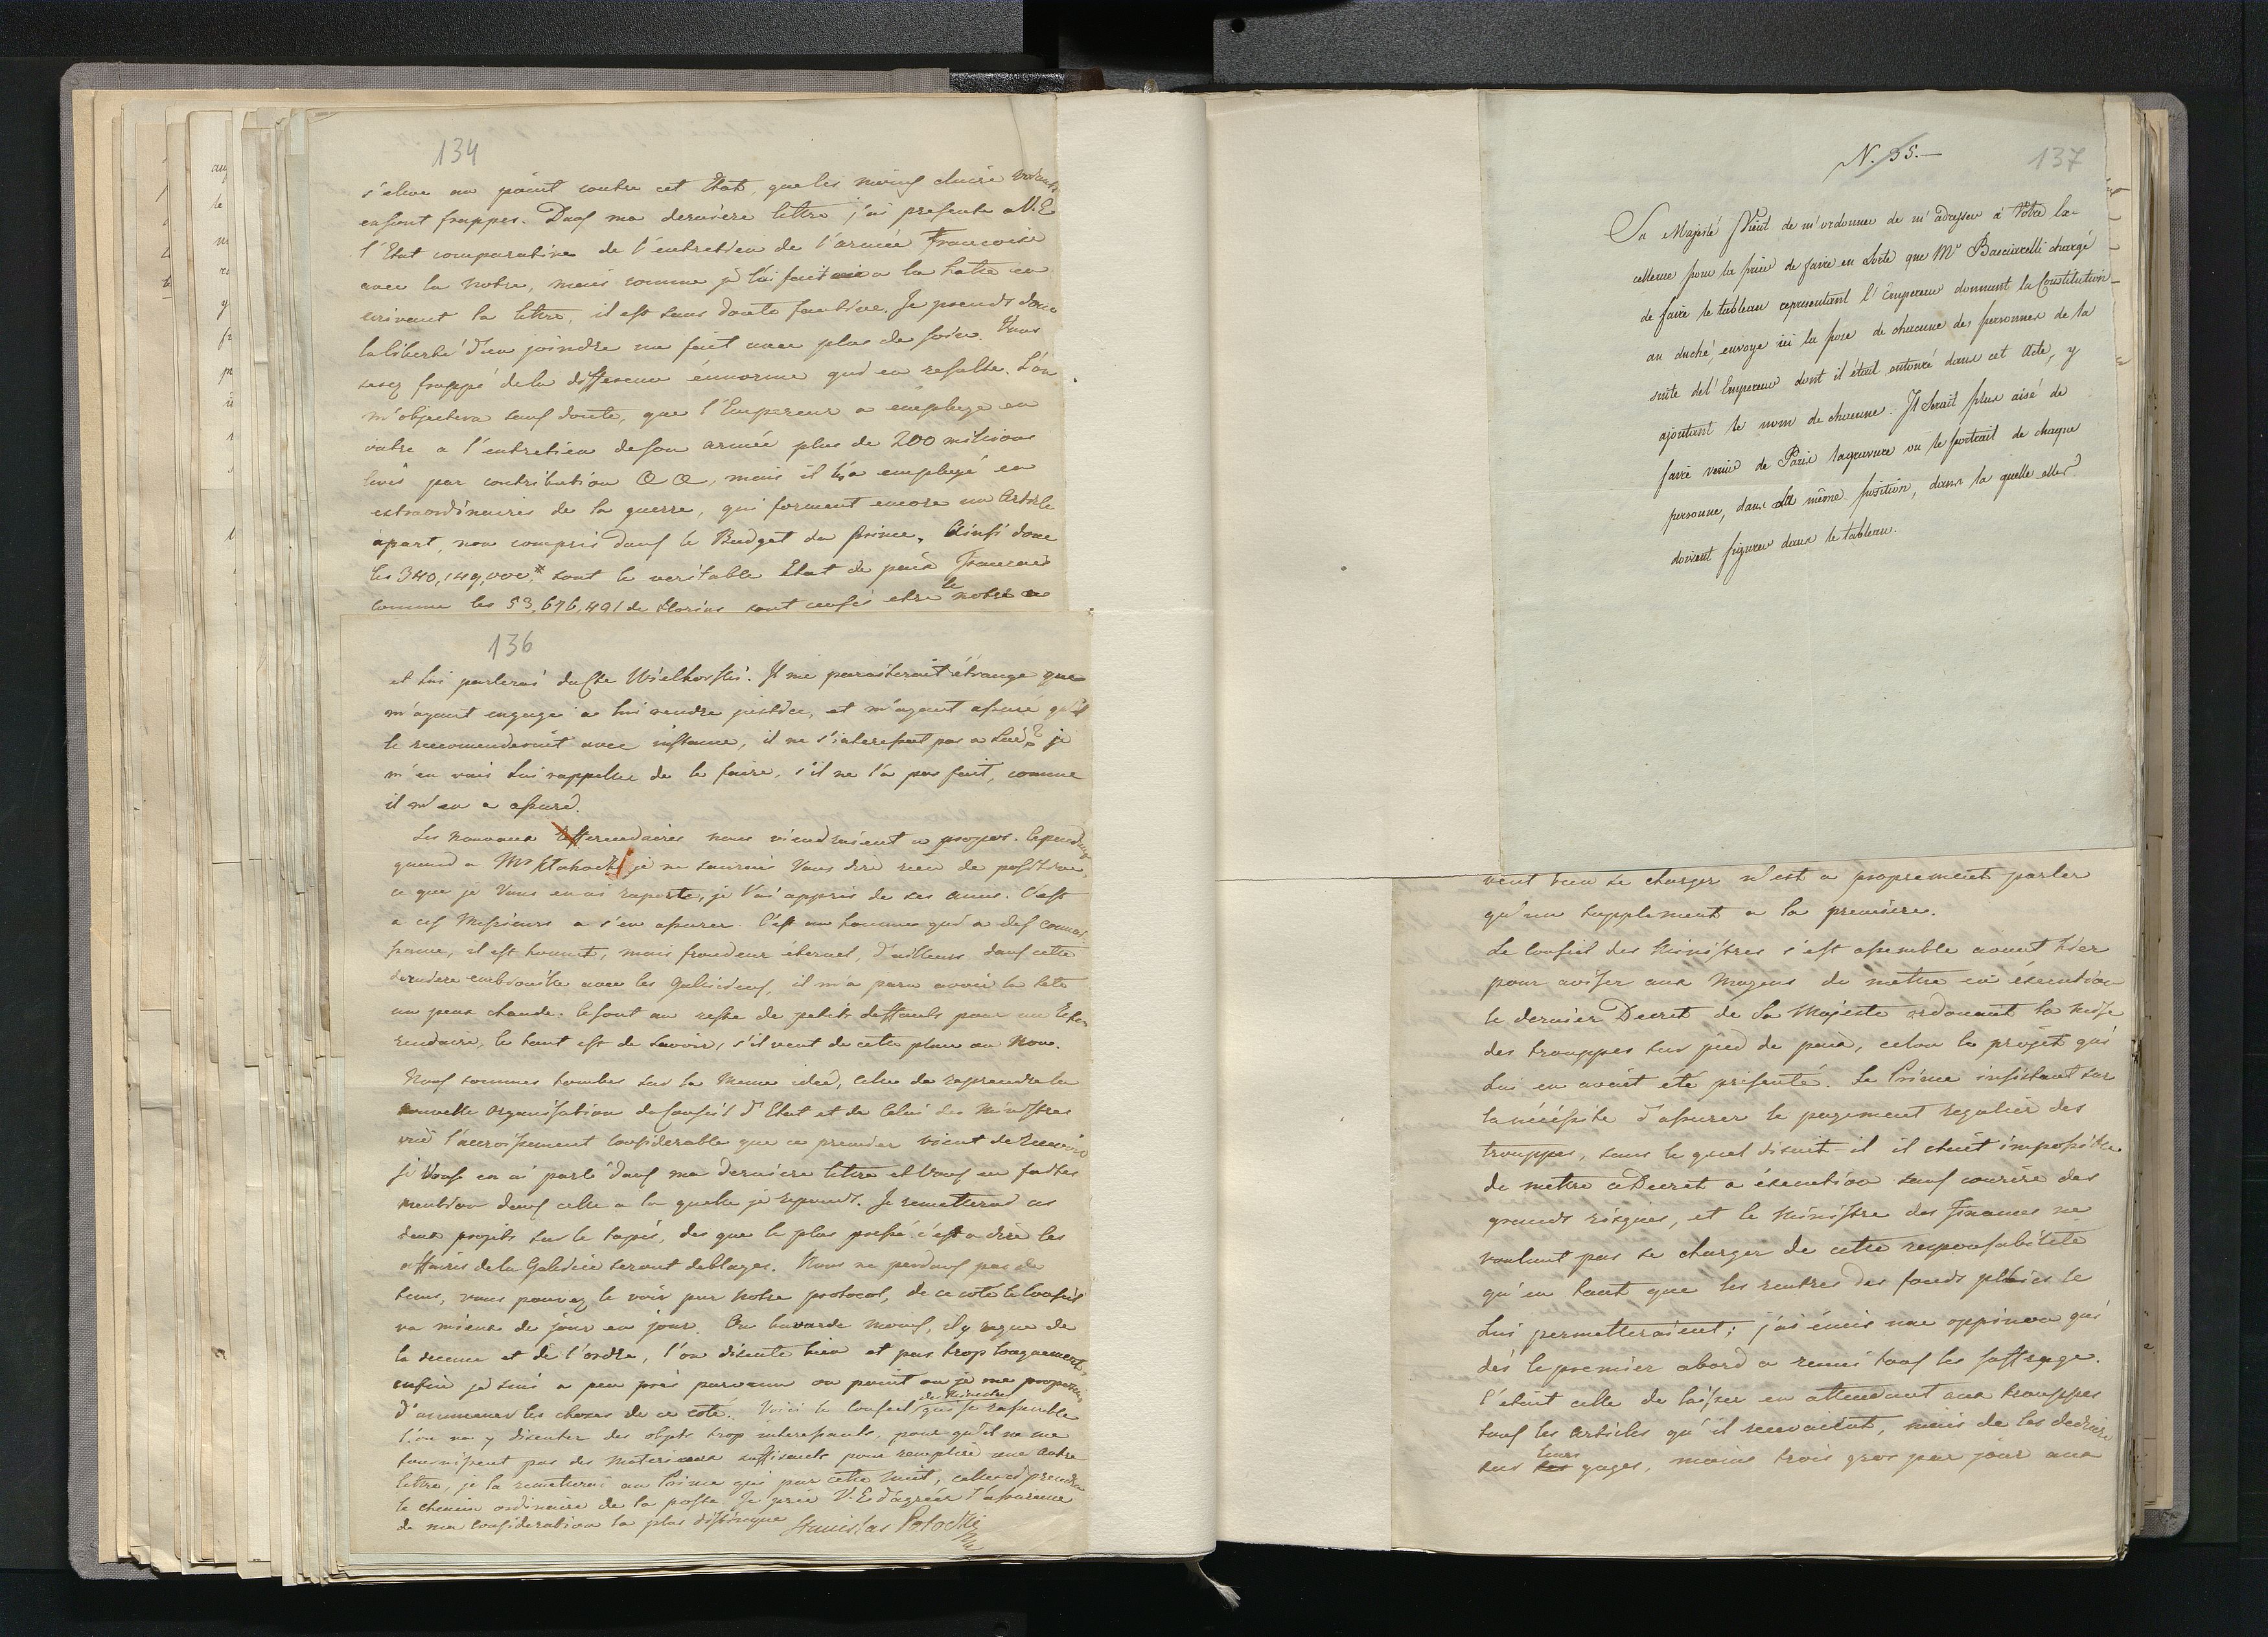 134
s'eleve un point contre cet Etat, que les moins claire voiants
en sont frappes. Dans ma derniere lettre j'ai presente a V.E
l'Etat comparative de l'entretien de l'armée Francoise
avec la notre, mais comme je l'ai fait a la hate en
ecrivant la lettre, il est sans doute fautive. Je prends donc
la liberté d'en joindre un fait avec plus de soin. Vous
serez frappé de la difference ennorme qui en resulte. L'on
m'objectera sans doute, que l'Empereur a employe en
outre a l'entretien de son armée plus de 200 millions
levés par contribution &&, mais il l'a employé en
extraordinaires de la guerre, qui forment encore un Article
apart, non compris dans le Budget du prince. Ainsi donc
les 340,149,000,* sont le veritable Etat de paix Francais
comme les 53,676,491 de florins sont censés etre le notre
136
et lui parlerai du Cte Wielhorski. Il me paraiteroit étrange que
m'ayant engagé a lui rendre justice, et m'ayant assuré qu'il
le recomenderoit avec instance, il ne s'interessat pas a lui? je
m'en vais lui rappeller de le faire, s'il ne l'a pas fait, comme
il m'en a assuré.
Les nouveaux Refferendaires nous viendroient a propos. Cependant
quand a Mr je ne saurais Vous dire rien de positive,
ce que je Vous en ai raporté, je l'ai appris de ses amis. C'est
a ces Messieurs a s'en assurer. C'est un homme qui a des connai-
sance, il est honnet, mais frondeur éternel, d'ailleurs dans cette
derniere embrouille avec les Galiciens, il m'a paru avoir la tete
un peux chaude. Ce sont au reste de petits deffauts pour un Refe-
rendaire, le tout est de savoir, s'il veut de cette place ou Non.
Nous sommes tombes sur la meme idée, celle de reprendre la
nouvelle organisation du Conseil d'Etat et de Celui des Ministres
vuë l'accroissement considerable que ce premier vient de recevoir
je Vous en ai parlé dans ma derniere lettre et Vous en faites
mention dans celle a la quelle je reponds. Je remetterai ces
deux projets sur le tapis, des que le plus pressé c'est a dire les
affaires de la Galicie seront deblayes. Nous ne perdons pas de
tems, vous pouvez le voir par notre protocol, de ce coté le Conseil
va mieux de jour en jour. On bavarde moins, il y regne de
la decence et de l'ordre, l'on discute bien et pas trop longuement,
enfin je suis a peu prés parvenu au point ou je me proposois
d'ammener les choses de ce coté. Voici le Conseil des Ministres qui se rassemble
l'on va y discuter des objets trop interessants, pour qu'il ne me
fournissent pas des materieaux suffisents pour remplire une autre
lettre, je la remetterai au Prince qui part cette nuit, celle-ci prendra
le chemin ordinaire de la poste. Je prie V.E d'agréer l'assurance
de ma consideration la plus distingué Stanislas Potocki
N. 35.— 137
Sa Majesté Vient de m'ordonner de m'adresser à Votre Ex-
cellence pour la prier de faire en Sorte que Mr Bacciarelli chargé
de faire le tableau representant l'Empereur donnant la Constitution
au duché, envoye ici la pose de chacune des personnes de la
suite de l'Empereur dont il était entouré dans cet Acte, y
ajoutant le nom de chacune. Il Serait plus aisé de
faire venir de Paris la gravure ou le portrait de chaque
personne, dans la même position, dans la quelle elles
doivent figurer dans le tableau.
veut bien se charger n'est a proprement parler
qu'un supplement a la premiere.
Le Conseil des Ministres s'est assemble avant hier
pour aviser aux moyens de mettre en éxecution
le dernier Decret de Sa Majeste ordonant la mise
des trouppes sur pied de paix, celon le projet qui
Lui en avait été présenté. Le Prince insistant sur
la nécéssite d'assurer le payement regulier des
trouppes, sans le quel disait-il il étoit impossible
de mettre ce Decret a éxecution sans courire des
grands risques, et le Ministre des Finances ne
voulant pas se charger de cette responsabilité
qu'en tant que les rentres des fonds publics le
Lui permetteraient; j'ai émis une oppinion qui
dès le premier abord a reuni tous les suffrage.
C'étoit celle de laisser en attendant aux trouppes
tous les articles qu'il recevoient, mais de les deduire
sur leurs gages, moins trois gros par jour aux